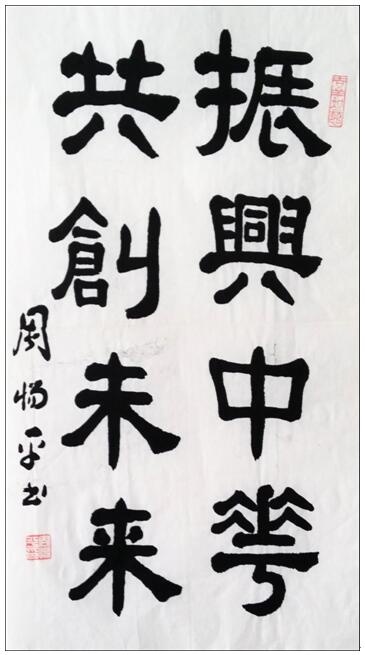 振興中華
共創未来
周畅平书